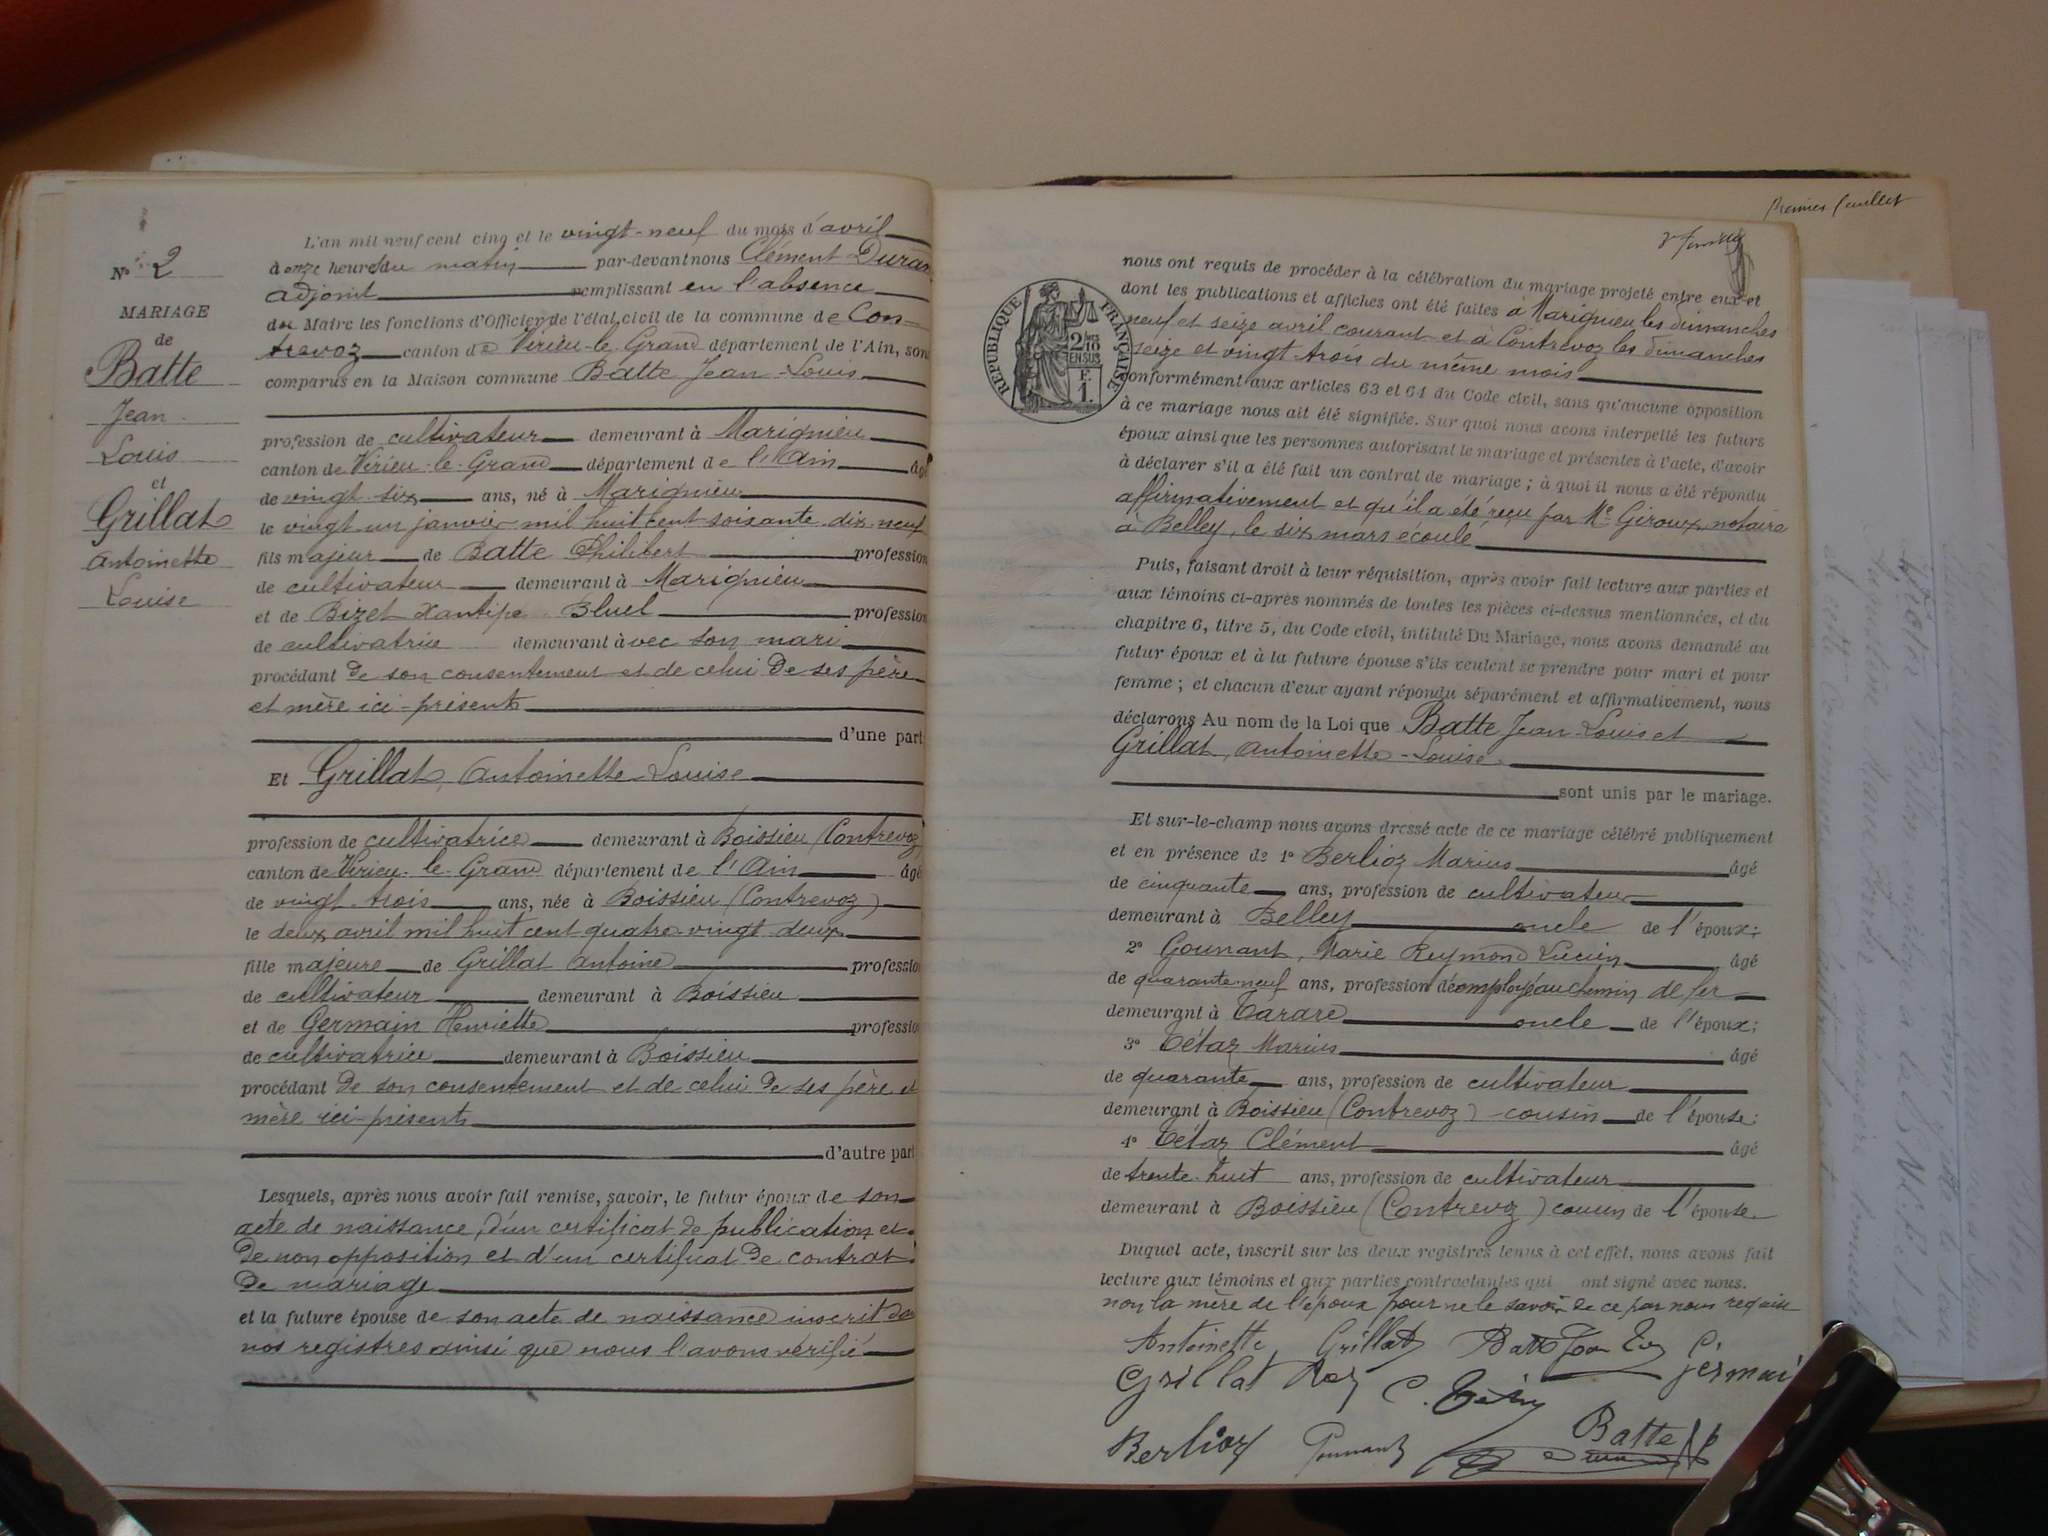 N° 2
MARIAGE
de
Batte
Jean
Louis
et
Grillat
Antoinette
Louise
L'an mil neuf cent cinq et le vingt-neuf du mois d'avril
à onze heures du matin par-devant nous Clément Duran
adjoint remplissant en l'absence
du Maire les fonctions d'Officier de l'état civil de la commune de Con-
trevoz canton de Virieu-le-Grand département de l'Ain, sont
comparus en la Maison commune Batte Jean-Louis
profession de cultivateur demeurant à Marignieu
canton de Virieu-le-Grand département de l'Ain âgé
de vingt-six ans, né à Marignieu
le vingt un janvier mil huit cent soixante-dix-neuf
fils majeur de Batte Philibert profession
de cultivateur demeurant à Marignieu
et de Bizet Xantipe profession
de cultivatrice demeurant avec son mari
procédant de son consentement et de celui de ses père
et mère ici-présents
d'une part
Et Grillat, Antoinette-Louise
profession de cultivatrice demeurant à Boissieu (Contrevoz)
canton de Virieu-le-Grand département de l'Ain âgé
de vingt-trois ans, née à Boissieu (Contrevoz)
le deux avril mil huit cent quatre-vingt-deux
fille majeure de Grillat Antoine profession
de cultivateur demeurant à Boissieu
et de Germain Henriette profession
de cultivatrice demeurant à Boissieu
procédant de son consentement et de celui de ses père et
mère ici-présents
d'autre part
Lesquels, après nous avoir fait remise, savoir, le futur époux de son
acte de naissance, d'un certificat de publication et
de non opposition et d'un certificat de contrat
de mariage
et la future épouse de son acte de naissance inscrit dans
nos registres ainsi que nous l'avons vérifié
Premier feuillet
RÉPUBLIQUE FRANÇAISE
2/10
EN SUS
F.
1.
nous ont requis de procéder à la célébration du mariage projeté entre eux et
dont les publications et affiches ont été faites à Marignieu les dimanches
neuf et seize avril courant et à Contrevoz les dimanches
seize et vingt trois du même mois
conformément aux articles 63 et 64 du Code civil, sans qu'aucune opposition
à ce mariage nous ait été signifiée. Sur quoi nous avons interpellé les futurs
époux ainsi que les personnes autorisant le mariage et présentes à l'acte, d'avoir
à déclarer s'il a été fait un contrat de mariage ; à quoi il nous a été répondu
affirmativement et qu'il a été reçu par Me Giroux, notaire
à Belley, le six mars écoulé
Puis, faisant droit à leur réquisition, après avoir fait lecture aux parties et
aux témoins ci-après nommés de toutes les pièces ci-dessus mentionnées, et du
chapitre 6, titre 5, du Code civil, intitulé Du Mariage, nous avons demandé au
futur époux et à la future épouse s'ils veulent se prendre pour mari et pour
femme ; et chacun d'eux ayant répondu séparément et affirmativement, nous
déclarons Au nom de la Loi que Batte Jean-Louis et
Grillat, Antoinette-Louise
sont unis par le mariage.
Et sur-le-champ nous avons dressé acte de ce mariage célébré publiquement
et en présence de 1° Berlioz Marius âgé
de cinquante ans, profession de cultivateur
demeurant à Belley oncle de l'époux;
2° Gounant, Marie Reymond Lucien âgé
de quarante neuf ans, profession d'employé au chemin de fer
demeurant à Tarare oncle de l'époux;
3° Tétaz Marius âgé
de quarante ans, profession de cultivateur
demeurant à Boissieu (Contrevoz) cousin de l'épouse;
4° Tétaz Clément âgé
de trente-huit ans, profession de cultivateur
demeurant à Boissieu (Contrevoz) cousin de l'épouse
Duquel acte, inscrit sur les deux registres tenus à cet effet, nous avons fait
lecture aux témoins et aux parties contractantes qui ont signé avec nous.
non la mère de l'époux pour ne le savoir de ce par nous requise
Antoinette Grillat Batte Jean Germai
Grillat C. Tétaz
Berlioz Gounant Batte